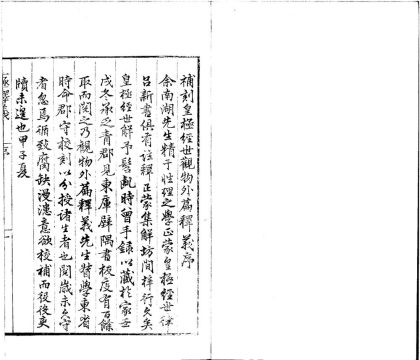 補刻皇極經世觀物外篇釋義序
余南湖先生精于性理之學正蒙皇極經世律
呂新書俱有註釋正蒙集解坊間梓行久矣
皇極經世解予髫齔時曾手錄以藏於家壬
戌冬承乏青郡見東庫壁隅書板庋有百餘
取而閱之乃觀物外篇釋義先生督學東省
時命郡守校刻以分授諸生者也閱歲未久守
者忽焉循致腐缺漫漶意欲校補而役役吏
牘未遑也甲子夏